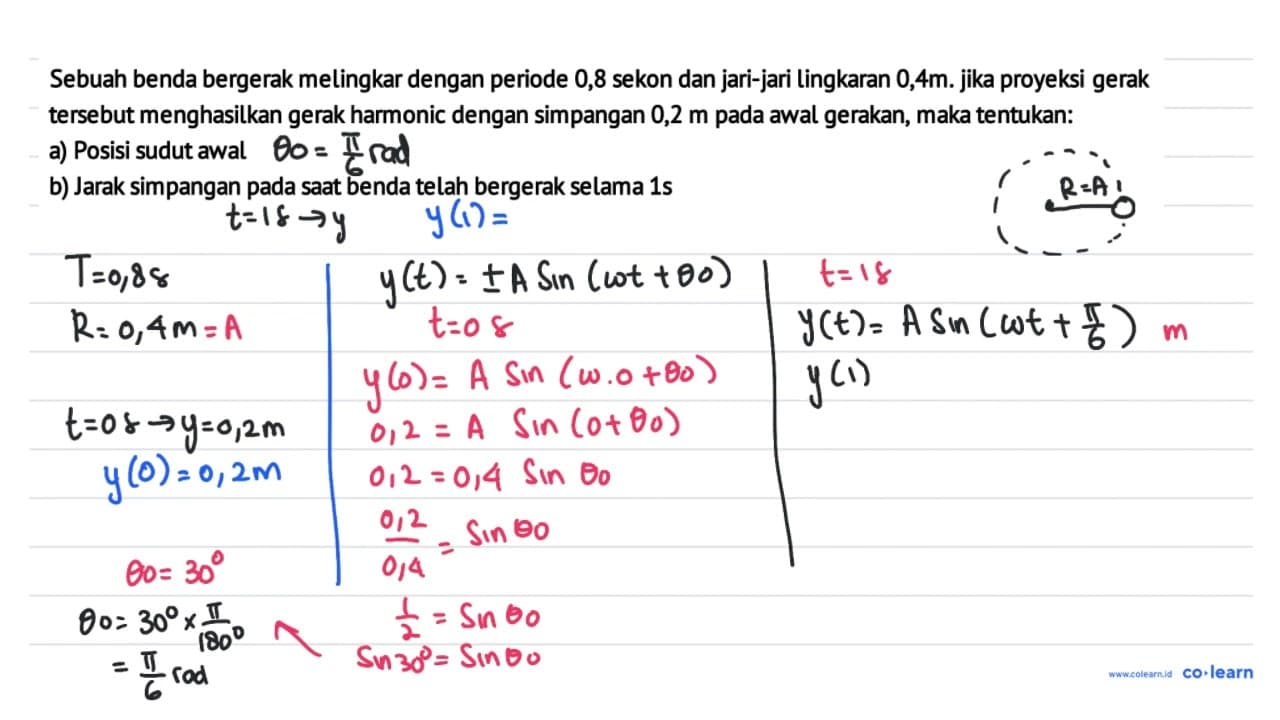 Sebuah benda bergerak melingkar dengan periode 0,8 sekon dan jari-jari lingkaran 0,4m. jika proyeksi gerak
tersebut menghasilkan gerak harmonic dengan simpangan 0,2 m pada awal gerakan, maka tentukan:
a) Posisi sudut awal θ0 = π/6 rad
b) Jarak simpangan pada saat benda telah bergerak selama 1s
t=1s → y y(1) =
R=A
T=0,8s
R=0,4m=A
t=0s → y=0,2m
y(0)=0,2m
θ0=30°
θ0=30° x π/180°
= π/6 rad
y(t) = ± A Sin (ωt + θ0)
t=0s
y(0) = A Sin (ω.0+θ0)
0,2 = A Sin (0+θ0)
0,2 = 0,4 Sin θ0
0,2/0,4 = Sin θ0
1/2 = Sin θ0
Sin 30° = Sin θ0
t=1s
y(t) = A Sin (ωt + π/6) m
y(1)
www.colearn.id co·learn